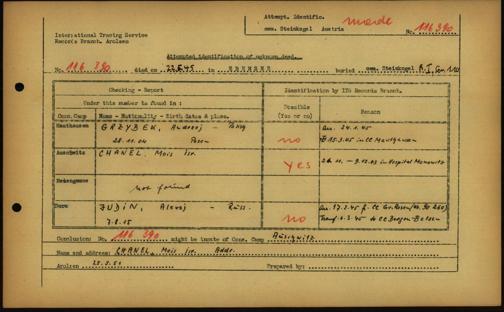 Attempt. Identific. made
International Tracing Service
Records Branch. Arolsen
cem. Steinkogel Austria No. 116 390
Attempted identification of unknown dead.
No. 116 390 died on 22.5.45 in EBENSEE buried cem. Steinkogel
Checking - Report
Identification by ITS Records Branch.
Under this number is found in :
Possible (Yes or no)
Reason
Conc.Camp Name - Nationality - Birth dates & place.
Mauthausen GRZYBEK, Andrzej - Polog
28.11.04 Posen
no
Arr. 24.1.45
15.3.45 in CC Mauthausen
Auschwitz CHANEL, Mois Isr.
yes
26.11. - 9.12.43 in Hospital Monowitz
Natzengame
not found
Dora JUDIN, Alexej - Russ.
7.8.15
no
Arr. 27.2.45 f. CC Gr. Rosen
Transf. 6.3.45 to CC Bergen-Belsen
Conclusion: No. 116 390 might be inmate of Conc. Camp Auschwitz
Name and address: CHANEL, Mois Isr. Addr.
Arolsen 25.9.51 Prepared by: